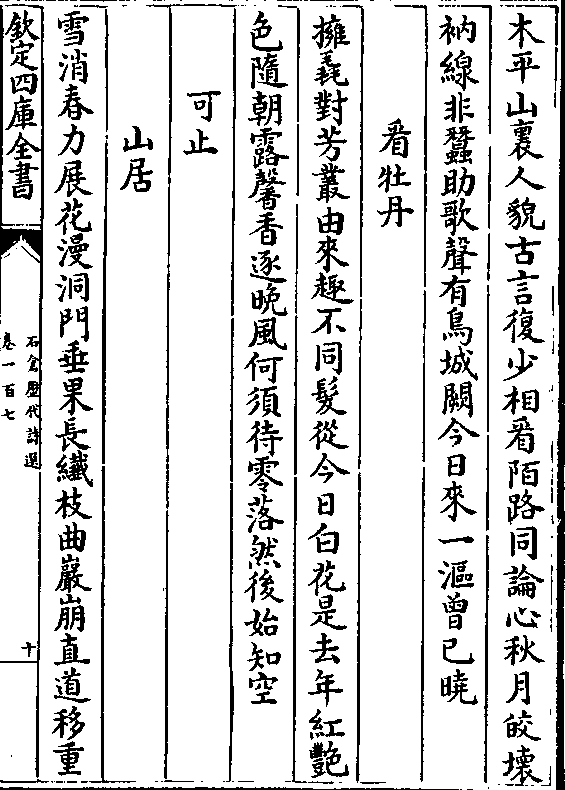 木平山裏人貌古言復少相㸔陌路同論心秋月皎壞
衲線非蠶助歌聲有鳥城闕今日來一漚曾已曉
㸔牡丹
擁毳對芳叢由來趣不同髮從今日白花是去年紅艷
色隨朝露馨香逐晚風何須待零落然後始知空
可止
山居
雪消春力展花漫洞門垂果長纎枝曲巖崩直道移重
欽定四庫全書
石倉歷代詩選
卷一百七
十